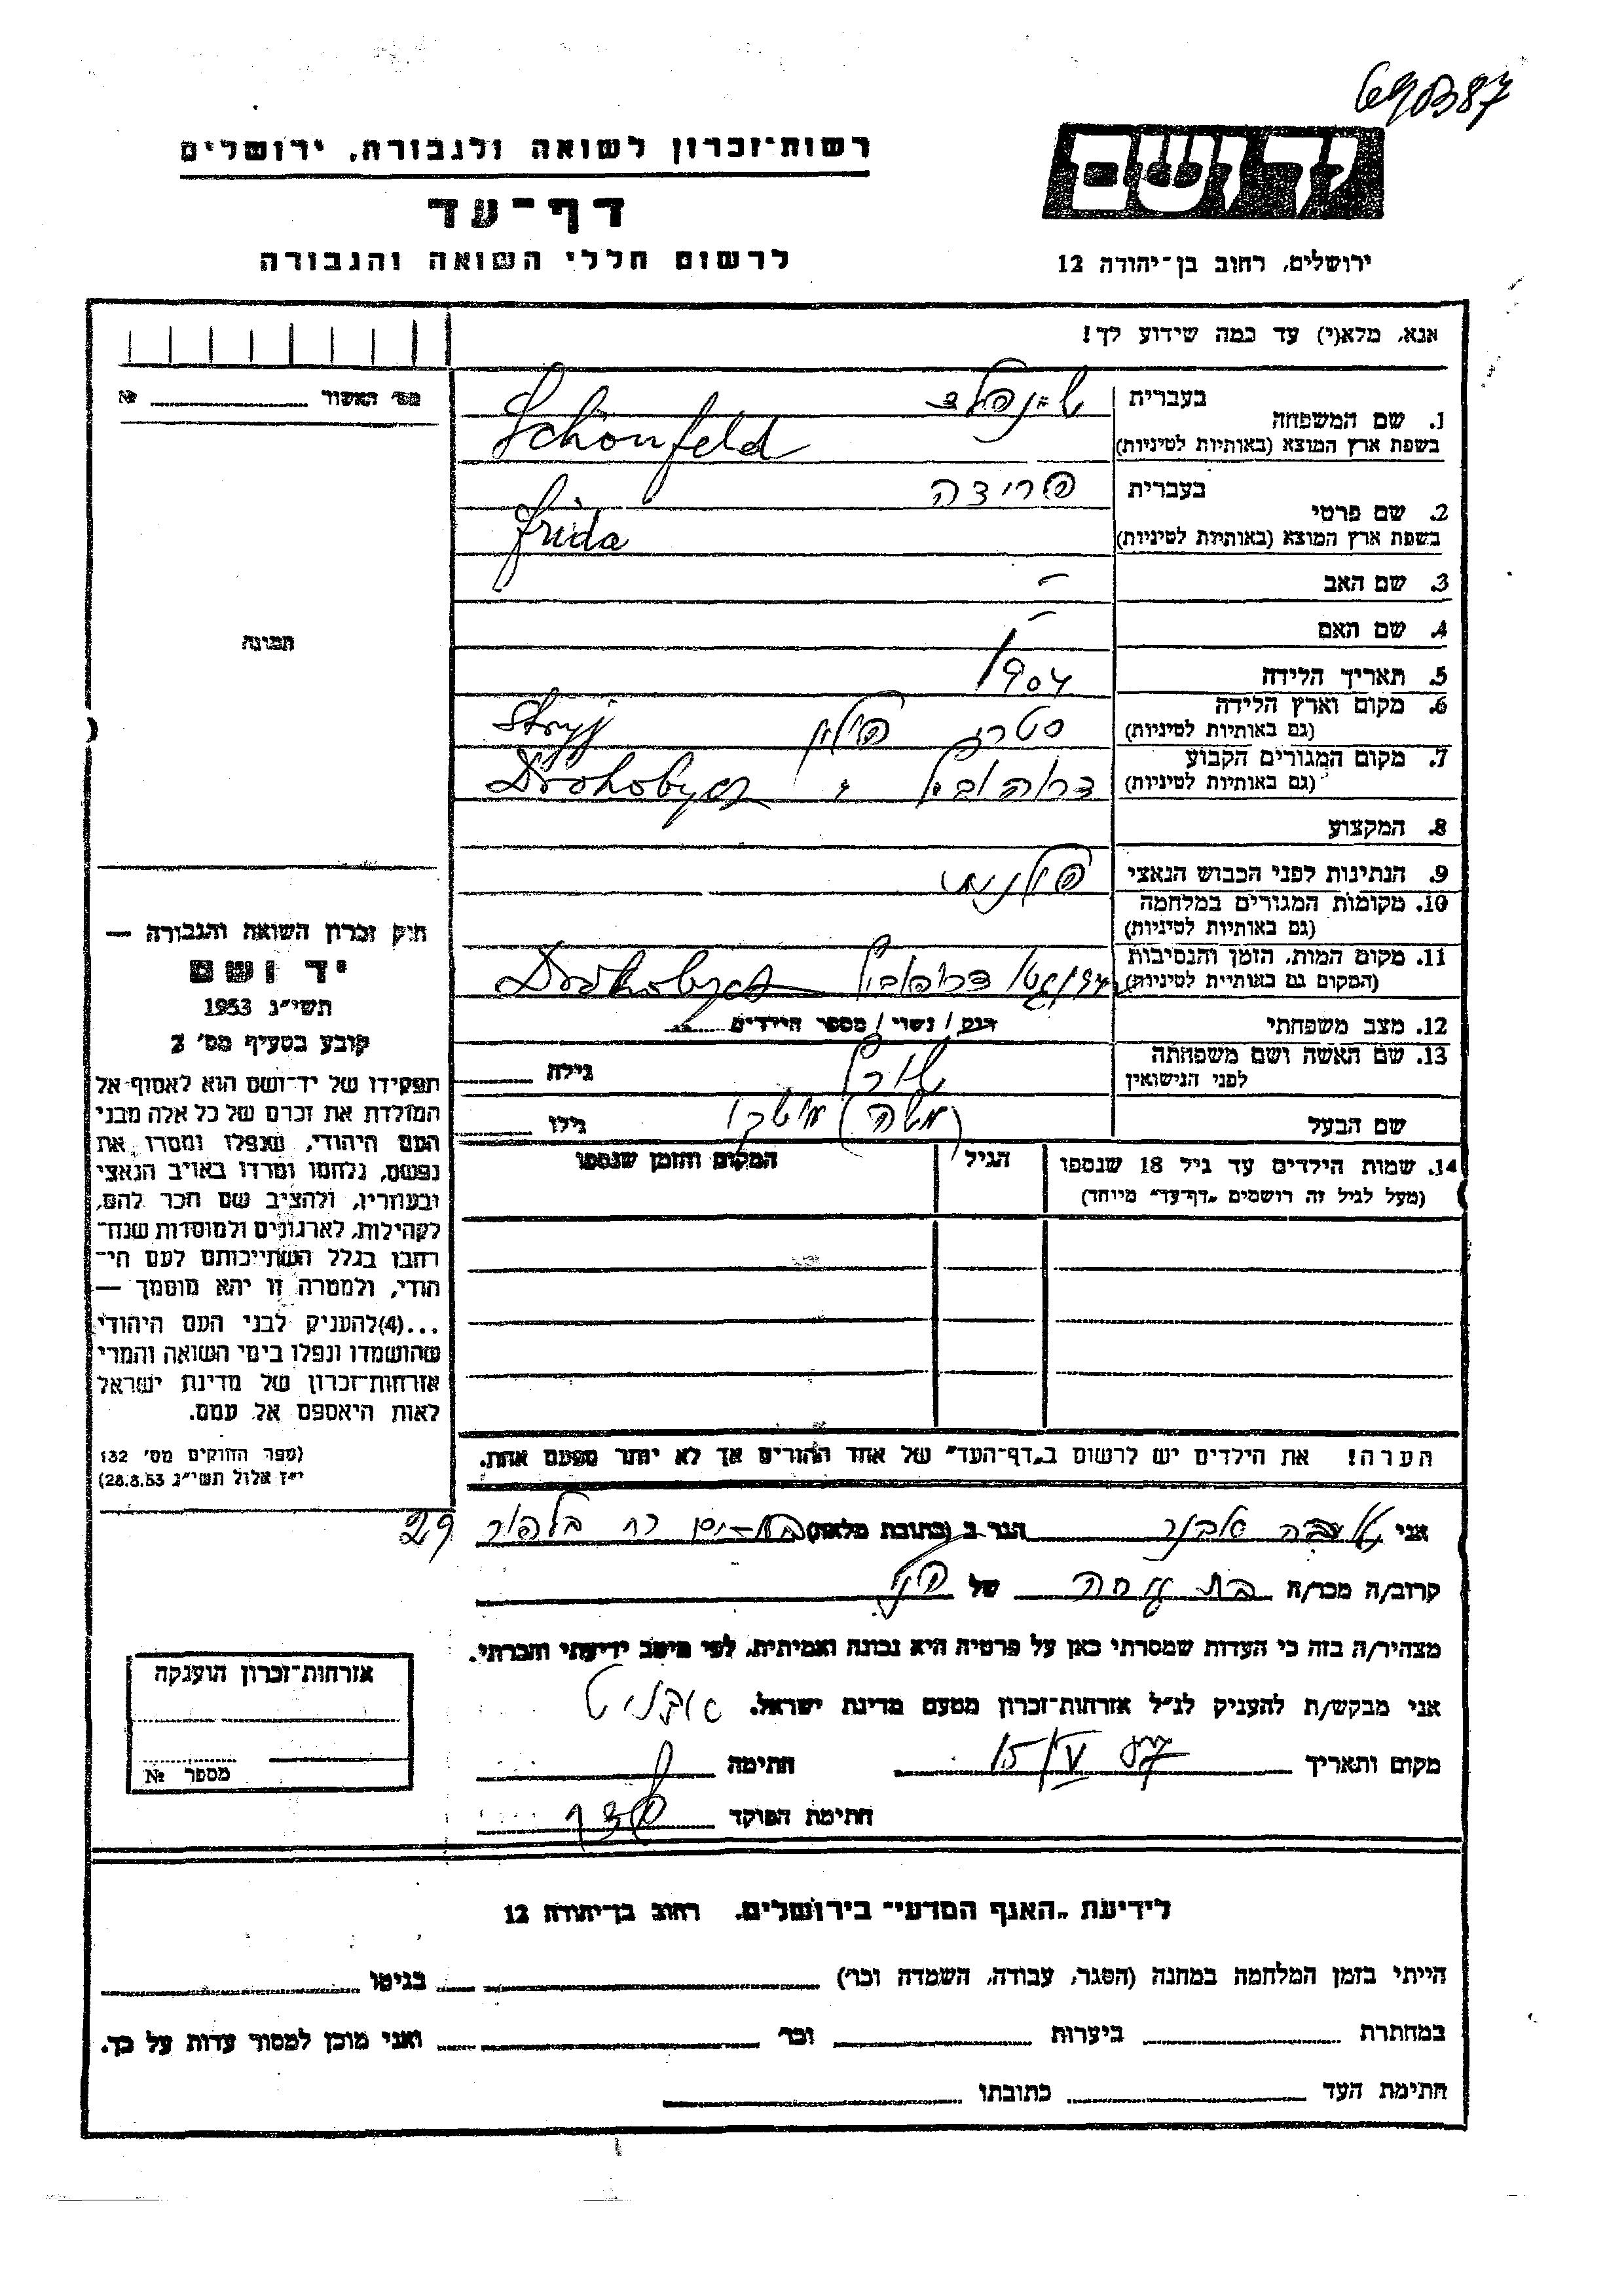 690387
יד ושם
ירושלים, רחוב בן־יהודה 12
רשות־זכרון לשואה ולגבורה, ירושלים
דף־עד
לרשום חללי השואה והגבורה
אנא, מלא(י) עד כמה שידוע לך!
מס׳ האשור №
1. שם המשפחה
בעברית
שנפלד
בשפת ארץ המוצא (באותיות לטיניות)
Schönfeld
2. שם פרטי
בעברית
פרידה
בשפת ארץ המוצא (באותיות לטיניות)
Frida
3. שם האב –
4. שם האם –
5. תאריך הלידה 1904
6. מקום וארץ הלידה
(גם באותיות לטיניות)
סטרי פולין Stryj
7. מקום המגורים הקבוע
(גם באותיות לטיניות)
Drohobycz
8. המקצוע
9. הנתינות לפני הכבוש הנאצי
10. מקומות המגורים במלחמה
(גם באותיות לטיניות)
11. מקום המות, הזמן והנסיבות
(המקום גם באותיות לטיניות)
Drohobycz
12. מצב משפחתי
רוק / נשוי / מספר הילדים
13. שם האשה ושם משפחתה
לפני הנישואין
גילה
שם הבעל
(משה)
גילו
14. שמות הילדים עד גיל 18 שנספו
(מעל לגיל זה רושמים „דף־עד״ מיוחד)
הגיל
המקום והזמן שנספו
הערה! את הילדים יש לרשום ב„דף־העד״ של אחד ההורים אך לא יותר מפעם אחת.
תמונה
חוק זכרון השואה והגבורה —
יד ושם
תשי״ג 1953
קובע בסעיף מס׳ 2
תפקידו של יד־ושם הוא לאסוף אל
המולדת את זכרם של כל אלה מבני
העם היהודי, שנפלו ומסרו את
נפשם, נלחמו ומרדו באויב הנאצי
ובעוזריו, ולהציב שם וזכר להם,
לקהילות, לארגונים ולמוסדות שנח־
רבו בגלל השתייכותם לעם הי־
הודי, ולמטרה זו יהא מוסמך —
...(4)להעניק לבני העם היהודי
שהושמדו ונפלו בימי השואה והמרי
אזרחות־זכרון של מדינת ישראל
לאות היאספם אל עמם.
(ספר החוקים מס׳ 132
י״ז אלול תשי״ג 28.8.53)
אני אבנר הגר ב (כתובת מלאה) בת־ים רח בלפור 29
קרוב/ה מכר/ה בת אחה של
מצהיר/ה בזה כי העדות שמסרתי כאן על פרטיה היא נכונה ואמיתית, לפי מיטב ידיעתי והכרתי.
אני מבקש/ת להעניק לנ״ל אזרחות־זכרון מטעם מדינת ישראל.
מקום ותאריך 15/V 57
חתימה
חתימת הפוקד
אזרחות־זכרון הוענקה
מספר №
לידיעת „האגף המדעי״ בירושלים, רחוב בן־יהודה 12
הייתי בזמן המלחמה במחנה (הסגר, עבודה, השמדה וכו׳) בגיטו
במחתרת ביערות וכו׳ ואני מוכן למסור עדות על כך.
חתימת העד כתובתו